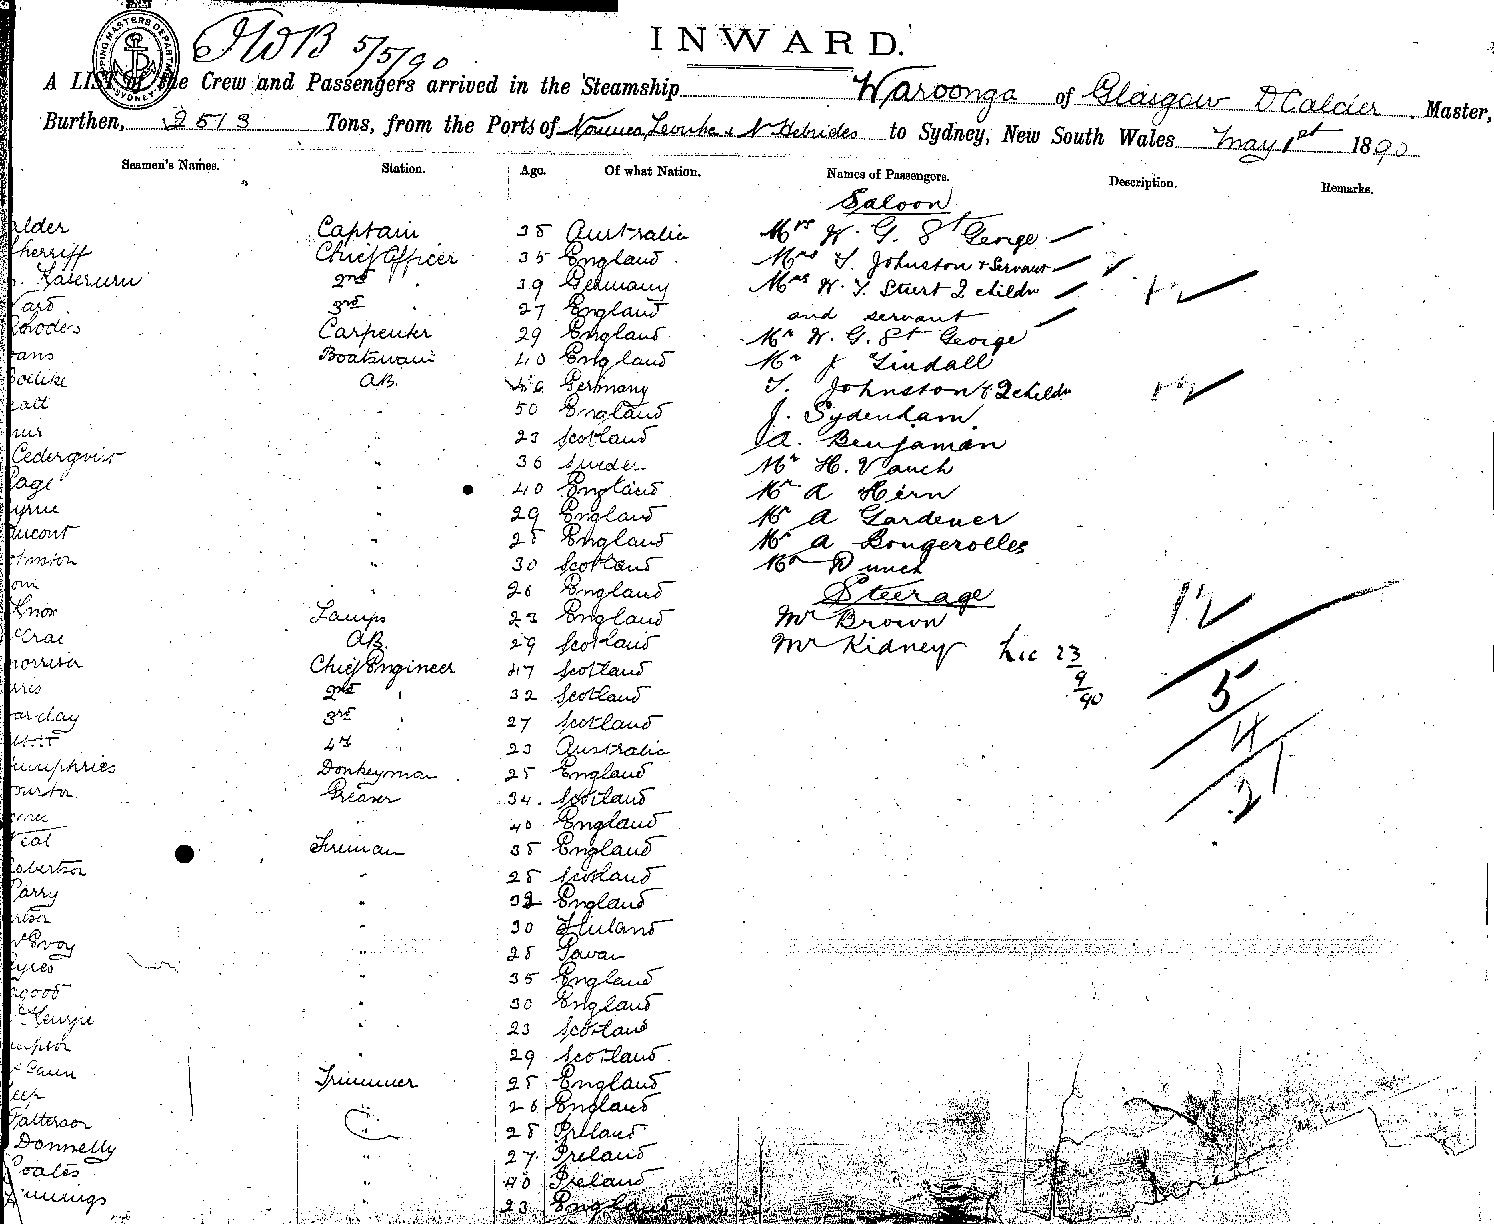 SHIPPING MASTERS DEPARTMENT SYDNEY
JWB 5/5/90
INWARD.
A LIST of the Crew and Passengers arrived in the Steamship Waroonga of Glasgow D Calder Master,
Burthen, 2513 Tons, from the Ports of Noumea Levuka & N Hebrides to Sydney, New South Wales May 1st 1890
Seamen's Names. Station. Age. Of what Nation. Names of Passengers. Description. Remarks.
Saloon
alder Captain 38 Australia Mrs W. G. St George
Sherriff Chief Officer 35 England Mrs T. Johnston & Servant
2nd " 39 Germany Mrs W. T. Sturt 2 childn
Ward 3rd " 27 England and servant
Rhodes Carpenter 29 England Mr W. G. St George
vans Boatswain 40 England Mr J Tindall
AB. Germany T. Johnston & 2 childn
50 England J. Sydenham
" 23 Scotland A. Benjamin
Cedergvist " 36 Sweden Mr H. Vauch
Page " 40 England Mr A Hern
yrne " 29 England Mr A Gardener
" 25 England Mr A Bougerolles
" 30 Scotland Mr Dunch
" 26 England Steerage
Knox Lamps 23 England Mr Brown 12
cCrae AB. 29 Scotland Mr Kidney 23/9/90
morrison Chief Engineer 47 Scotland
rris 2nd " 32 Scotland 5
arclay 3rd " 27 Scotland
4th " 23 Australia 4
umphries Donkeyman 25 England
ourton Greaser 34. Scotland 21
" 40 England
Neal Fireman 35 England
Robertson " 25 Scotland
Parry " 32 England
" 30 Finland
McEvoy " 28
yres " 35 England
agood " 30 England
cKenzie " 23 Scotland
umpton " 29 Scotland
cCann Trimmer 25 England
eep " 26 England
Patterson " 28 Ireland
Donnelly " 27 Ireland
Coales " 40 Ireland
Jennings " 23 England